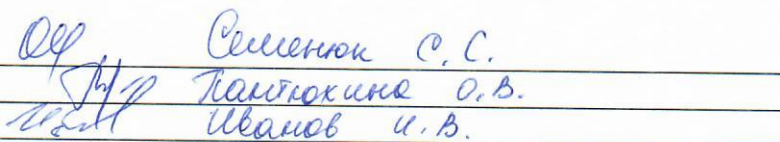 Семенюк С. С.
Пантюхина О. В.
Иванов И. В.